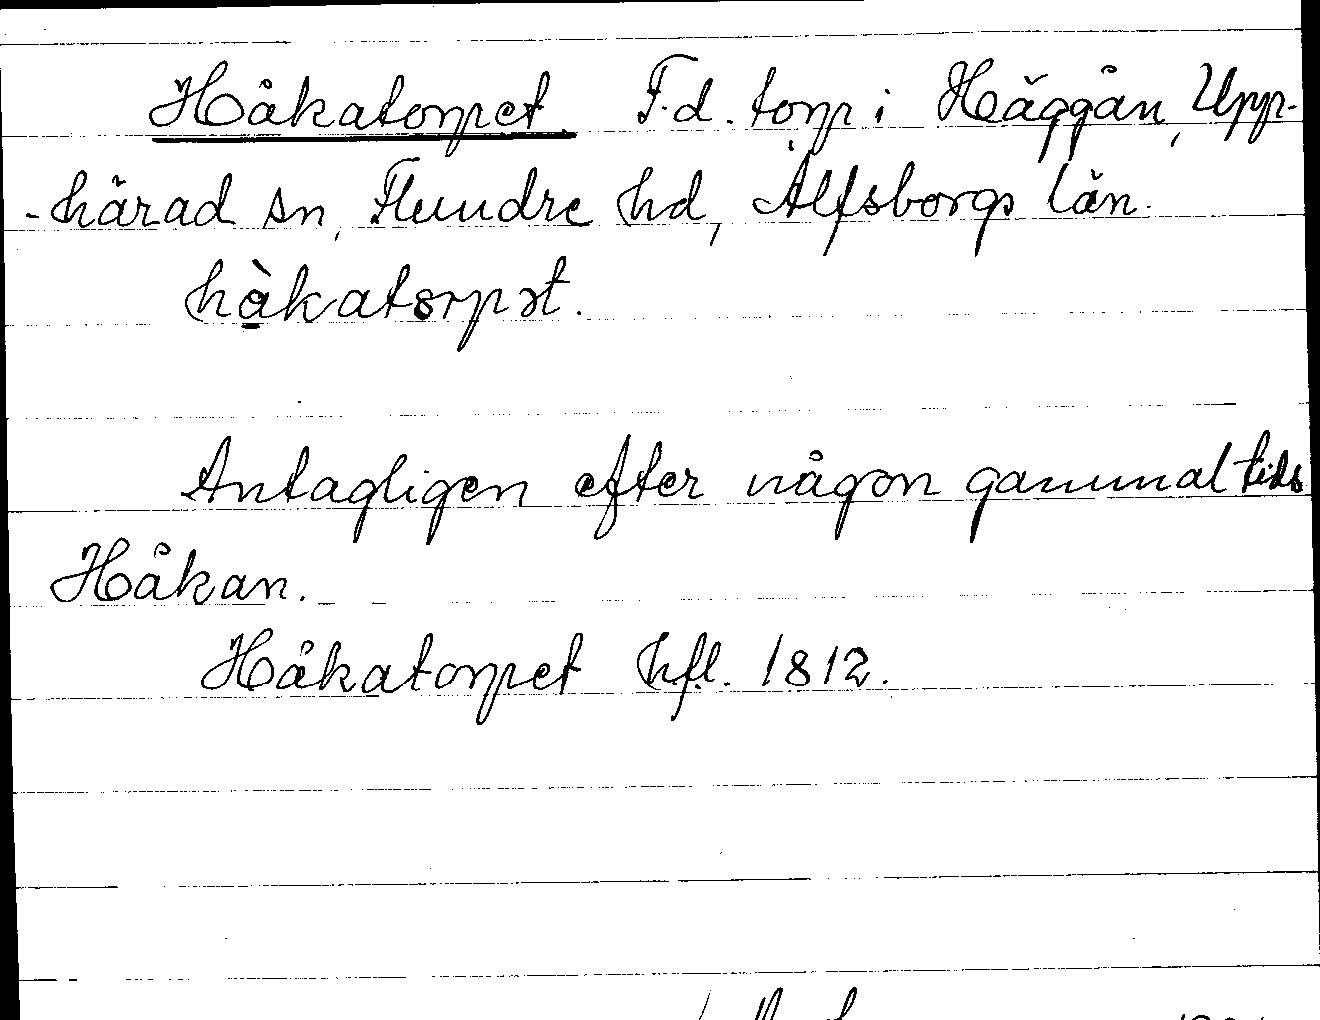 Håkatorpet F.d. torp i Häggån, Upp-
-härad sn, Flundre hd, Älfsborgs län.
hàkatorpət.
Antagligen efter någon gammal tids
Håkan.
Håkatorpet hfl. 1812.